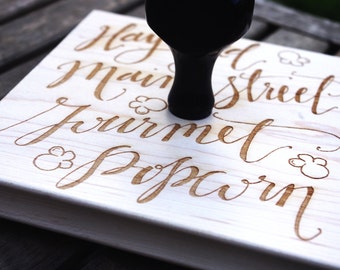 Main Street
Gourmet
Popcorn